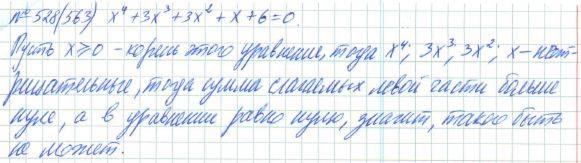 № 528(563) x⁴+3x³+3x²+x+6=0.
Пусть x⩾0 – корень этого уравнения, тогда x⁴; 3x³; 3x²; x – неот-
рицательные, тогда сумма слагаемых левой части больше
нуля, а в уравнении равно нулю, значит, такого быть
не может.